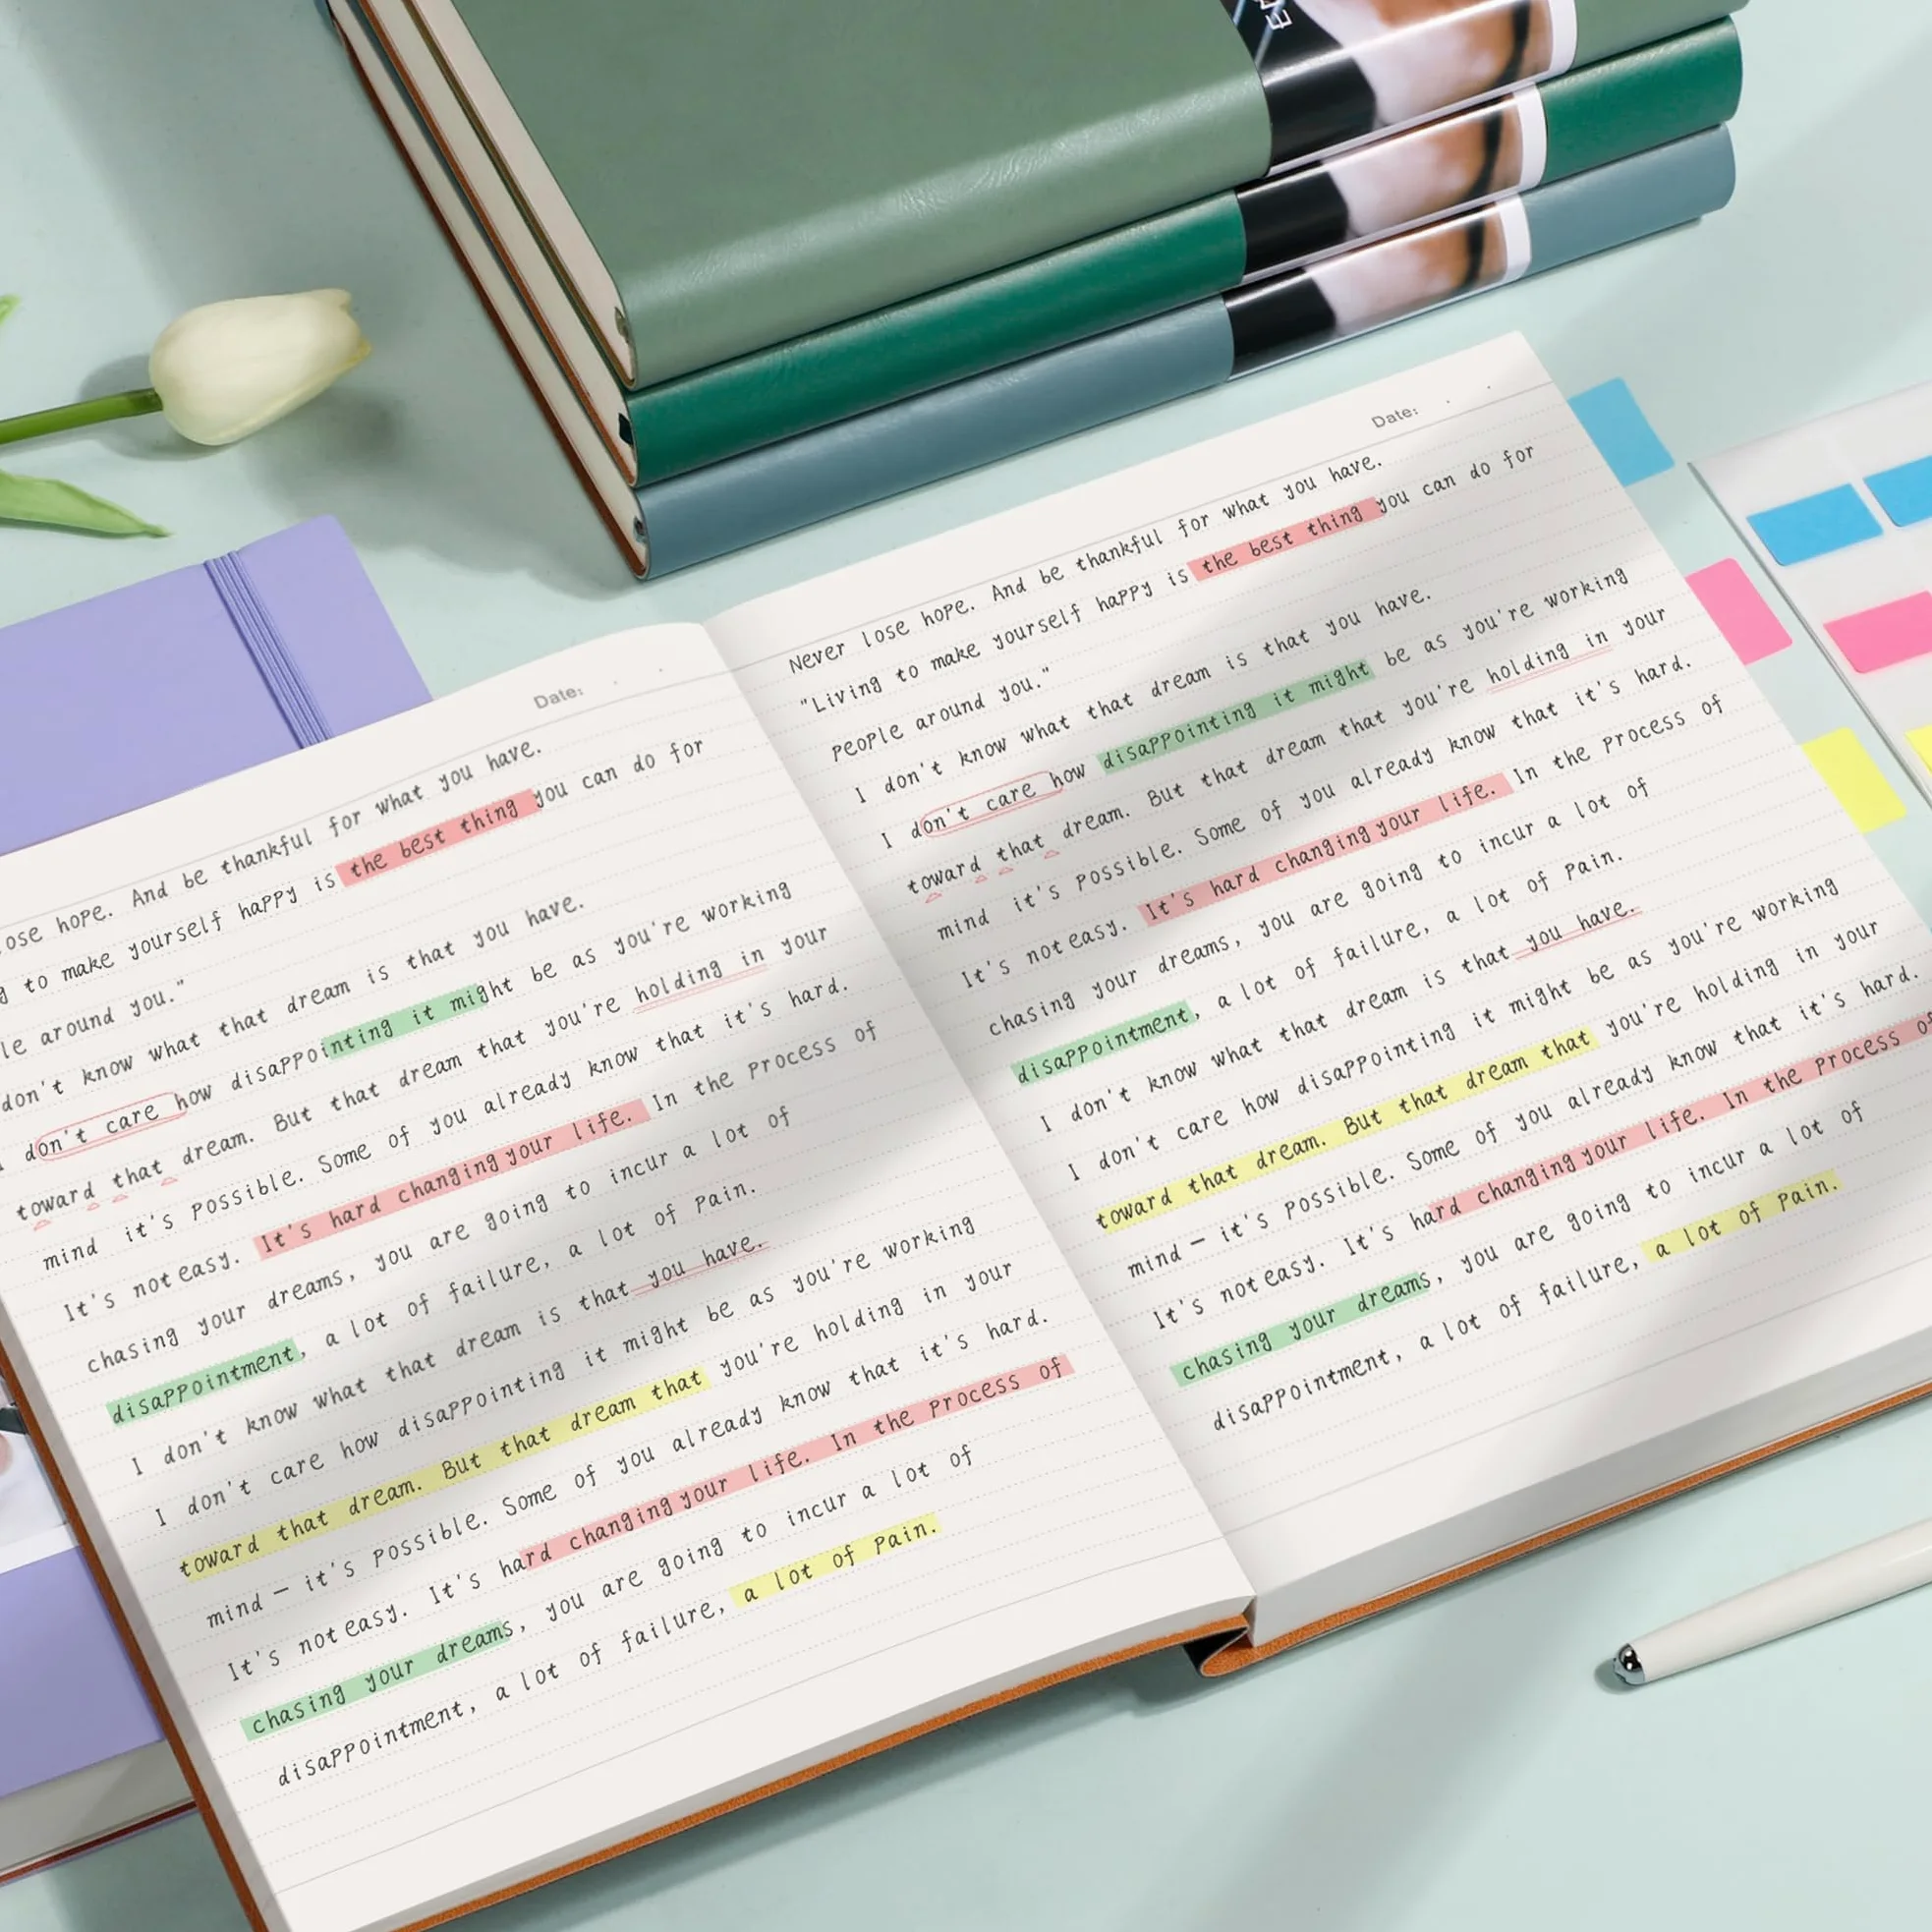 Date:
ose hope. And be thankful for what you have.
to make yourself happy is the best thing you can do for
le around you."
don't know what that dream is that you have.
don't care how disappointing it might be as you're working
toward that dream. But that dream that you're holding in your
mind it's possible. Some of you already know that it's hard.
It's not easy. It's hard changing your life. In the process of
chasing your dreams, you are going to incur a lot of
disappointment, a lot of failure, a lot of pain.
I don't know what that dream is that you have.
I don't care how disappointing it might be as you're working
toward that dream. But that dream that you're holding in your
mind – it's possible. Some of you already know that it's hard.
It's not easy. It's hard changing your life. In the process of
chasing your dreams, you are going to incur a lot of
disappointment, a lot of failure, a lot of pain.
Date:
Never lose hope. And be thankful for what you have.
"Living to make yourself happy is the best thing you can do for
people around you."
I don't know what that dream is that you have.
I don't care how disappointing it might be as you're working
toward that dream. But that dream that you're holding in your
mind it's possible. Some of you already know that it's hard.
It's not easy. It's hard changing your life. In the process of
chasing your dreams, you are going to incur a lot of
disappointment, a lot of failure, a lot of pain.
I don't know what that dream is that you have.
I don't care how disappointing it might be as you're working
toward that dream. But that dream that you're holding in your
mind – it's possible. Some of you already know that it's hard.
It's not easy. It's hard changing your life. In the process of
chasing your dreams, you are going to incur a lot of
disappointment, a lot of failure, a lot of pain.